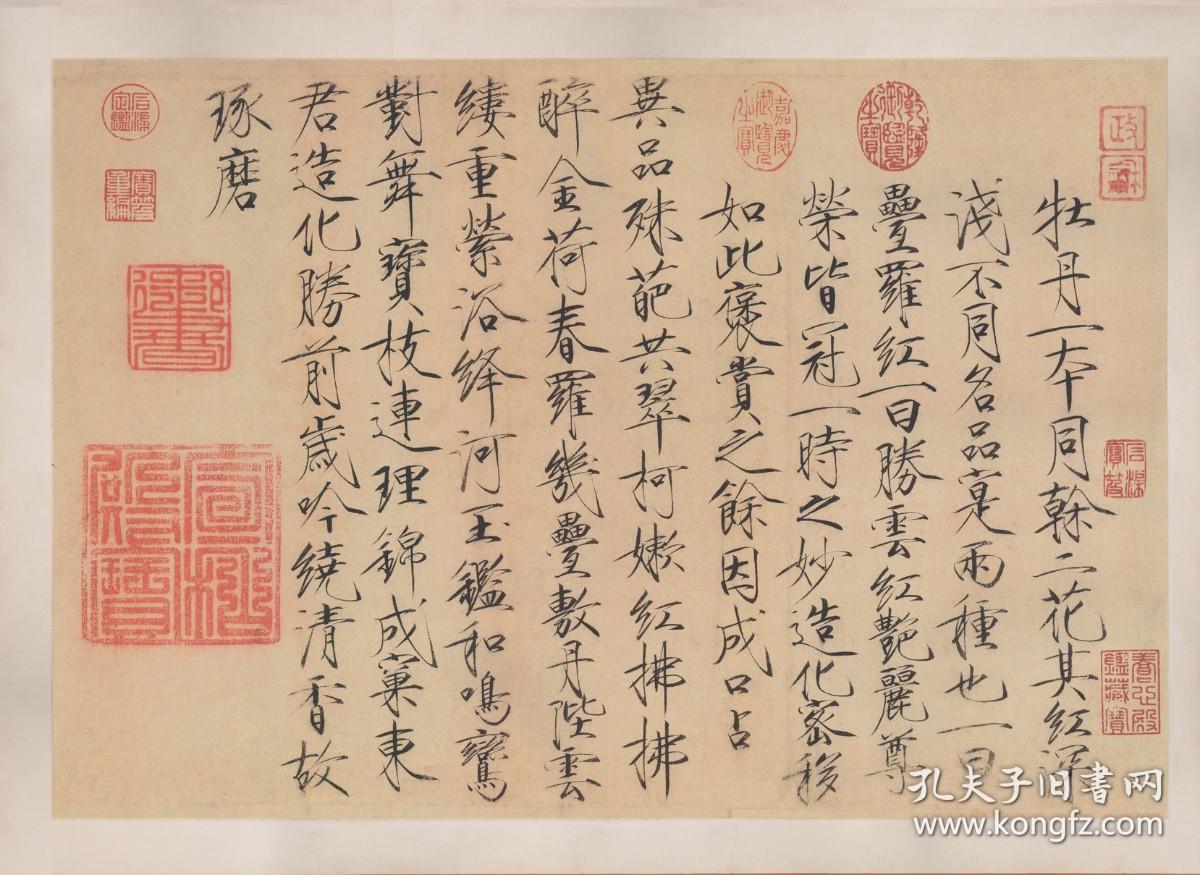 政龢
牡丹一本同榦二花其紅深
淺不同名品寔兩種也一曰
疊羅紅一曰勝雲紅艷麗尊
榮皆冠一時之妙造化密移
如此褒賞之餘因成口占
異品殊葩共翠柯嫩紅拂拂
醉金荷春羅幾疊敷丹陛雲
縷重縈浴絳河玉鑑和鳴鸞
對舞寶枝連理錦成窠東
君造化勝前歲吟繞清香故
琢磨
乾隆御覽之寶
嘉慶御覽之寶
石渠寶笈
養心殿鑑藏寶
石渠定鑑
寶笈重編
孔夫子旧书网
www.kongfz.com